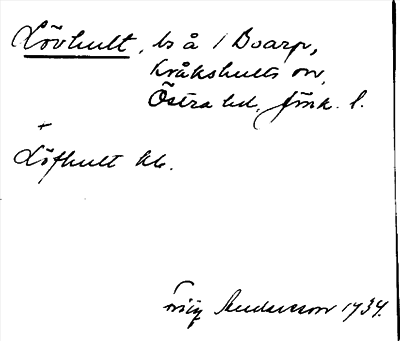 Lövhult, bs å 1 Boarp,
Kråkshults sn,
Östra hd, Jönk. l.
+
Löfhult hk.
Andersson 1934.